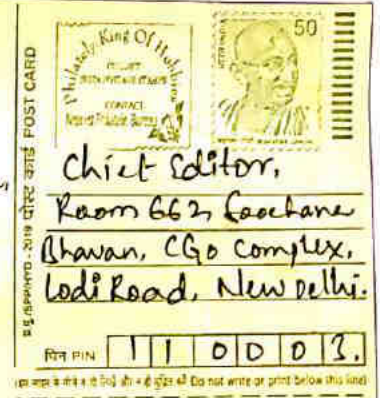 Philately King Of Hobbies
CONTACT
Nearest Philatelic Bureau
50
पोस्ट कार्ड POST CARD
Chief Editor,
Room 662, Soochana
Bhavan, CGo Complex,
Lodi Road, New Delhi.
पिन PIN 110003.
Do not write or print below this line